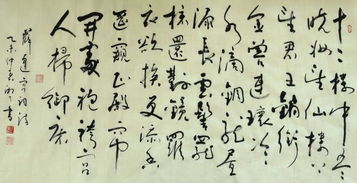 十二樓中盡
曉妝望仙樓上
望君王鎖銜
金獸連環冷
水滴銅龍晝
漏長雲髻罷
梳還對鏡羅
衣欲換更添香
遙窺正殿簾
開處袍袴宮
人掃御床
薛逢宮詞詩
乙未仲夏